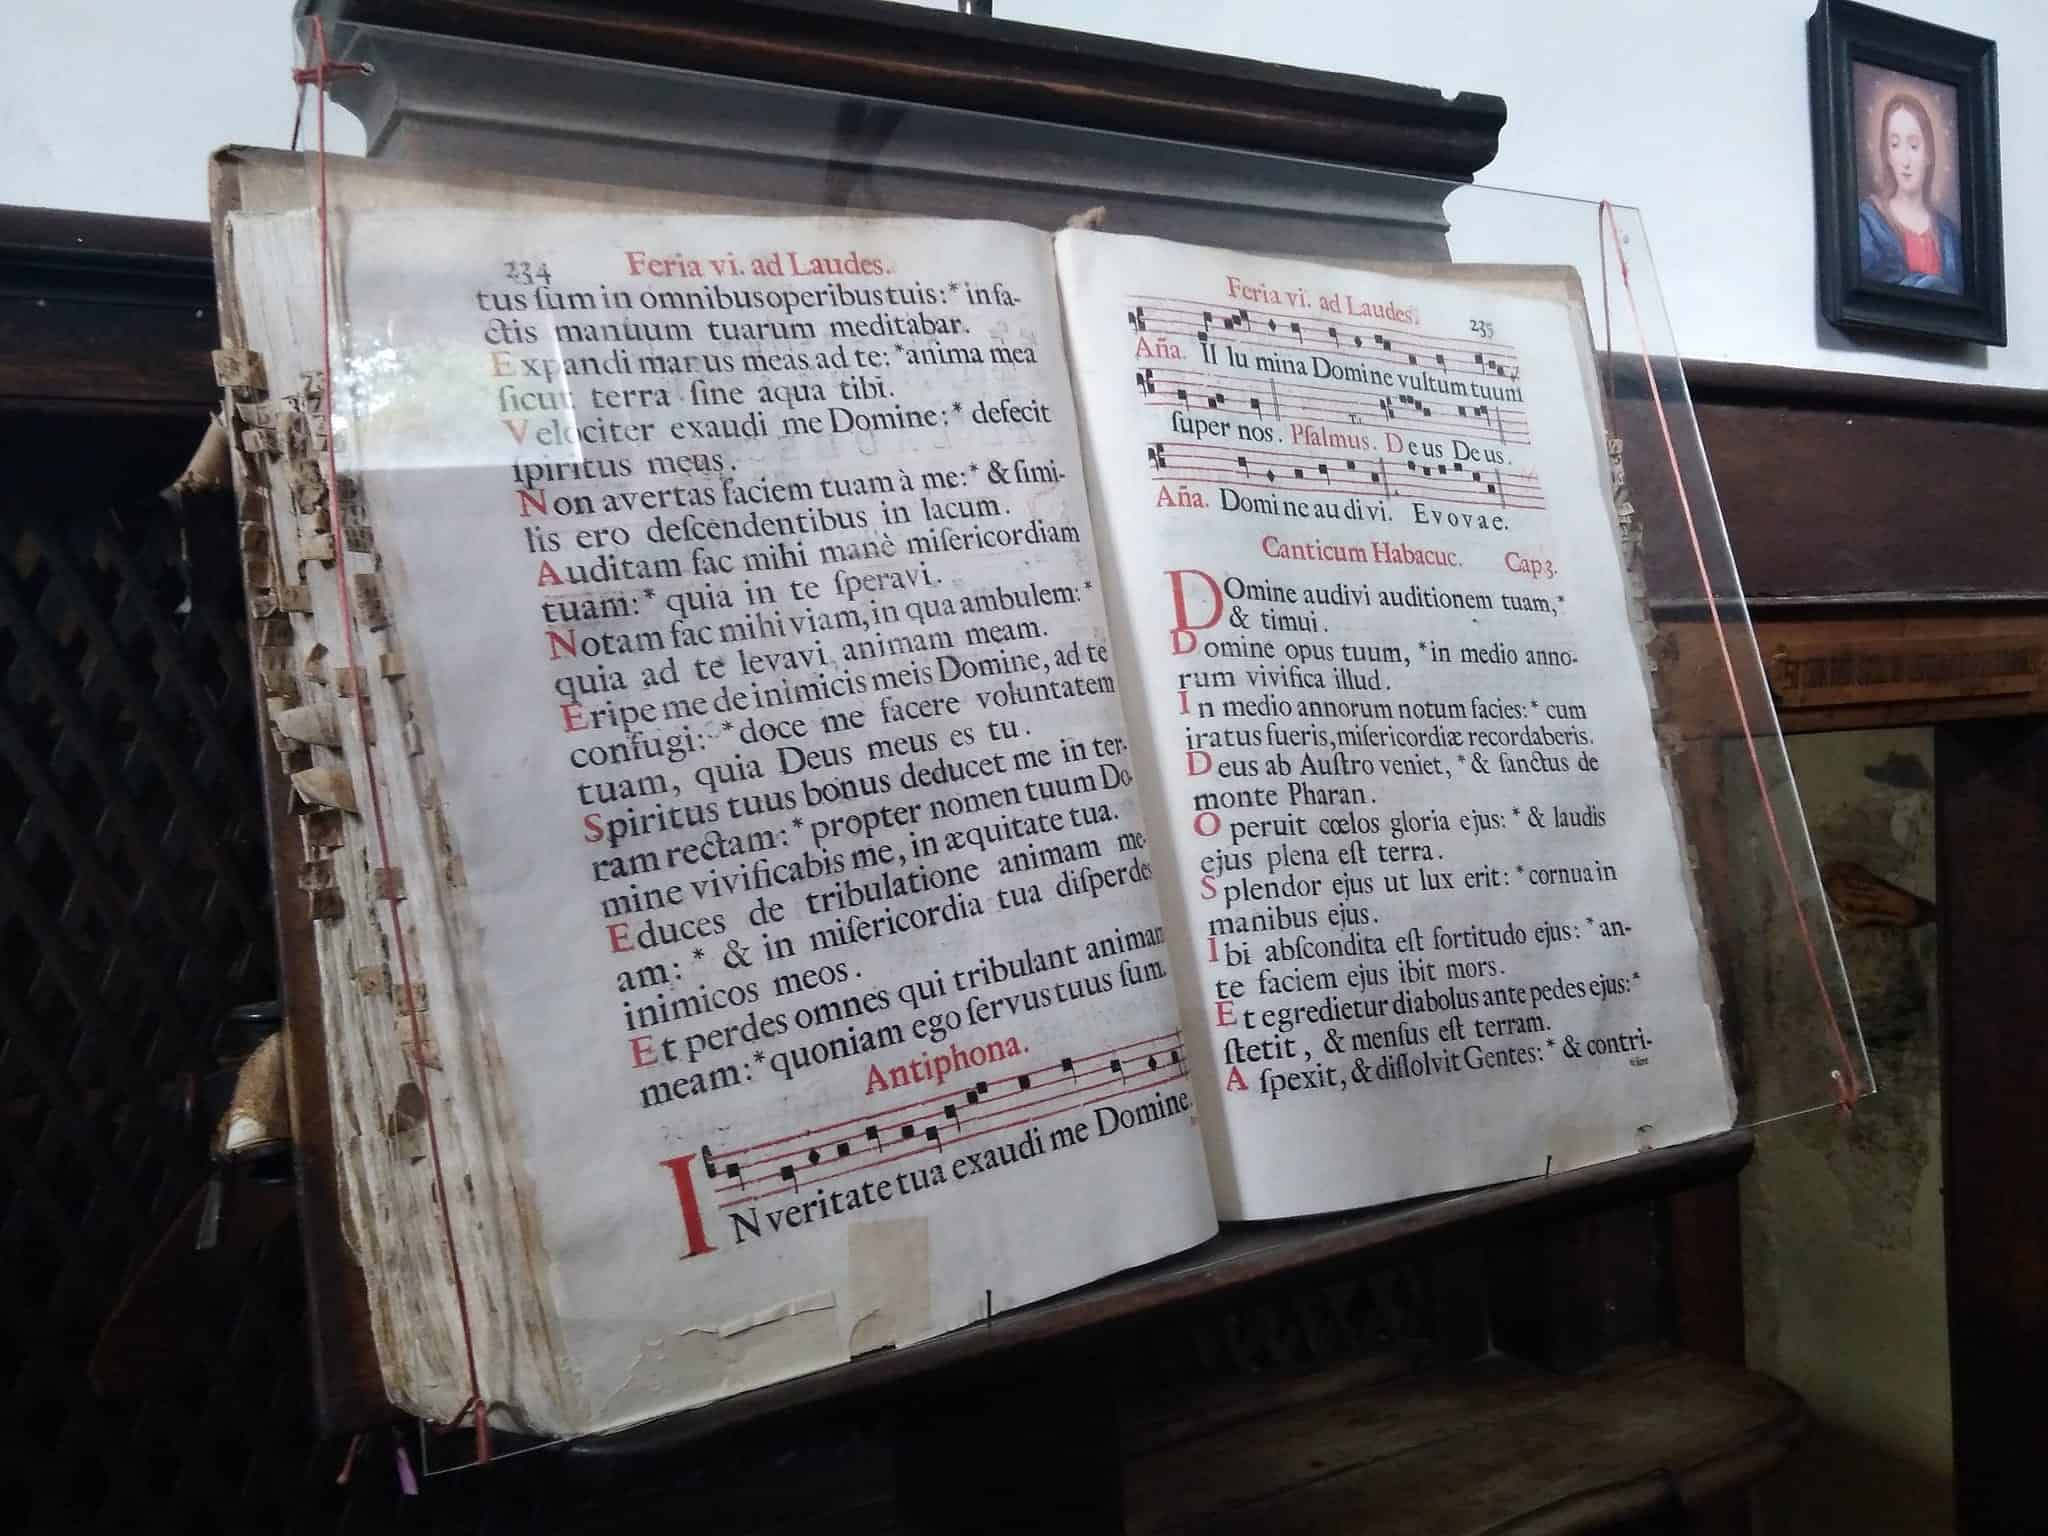 234 Feria vi. ad Laudes.
tus ſum in omnibus operibus tuis:* in fa-
ctis manuum tuarum meditabar.
Expandi manus meas ad te:* anima mea
ſicut terra ſine aqua tibi.
Velociter exaudi me Domine:* defecit
ſpiritus meus.
Non avertas faciem tuam à me:* & ſimi-
lis ero deſcendentibus in lacum.
Auditam fac mihi manè miſericordiam
tuam:* quia in te ſperavi.
Notam fac mihi viam, in qua ambulem:*
quia ad te levavi animam meam.
Eripe me de inimicis meis Domine, ad te
confugi:* doce me facere voluntatem
tuam, quia Deus meus es tu.
Spiritus tuus bonus deducet me in ter-
ram rectam:* propter nomen tuum Do-
mine vivificabis me, in æquitate tua.
Educes de tribulatione animam me-
am:* & in miſericordia tua diſperdes
inimicos meos.
Et perdes omnes qui tribulant animam
meam:* quoniam ego ſervus tuus ſum.
Antiphona.
IN veritate tua exaudi me Domine.
Feria vi. ad Laudes. 235
Aña. Il lu mina Domine vultum tuum
ſuper nos. Pſalmus. Deus Deus.
Aña. Domine au di vi. Evovae.
Canticum Habacuc. Cap 3.
DOmine audivi auditionem tuam,*
& timui.
Domine opus tuum, * in medio anno-
rum vivifica illud.
In medio annorum notum facies:* cum
iratus fueris, miſericordiæ recordaberis.
Deus ab Auſtro veniet, * & ſanctus de
monte Pharan.
Operuit cœlos gloria ejus:* & laudis
ejus plena eſt terra.
Splendor ejus ut lux erit:* cornua in
manibus ejus.
Ibi abſcondita eſt fortitudo ejus:* an-
te faciem ejus ibit mors.
Et egredietur diabolus ante pedes ejus:*
ſtetit, & menſus eſt terram.
Aſpexit, & diſſolvit Gentes:* & contri-